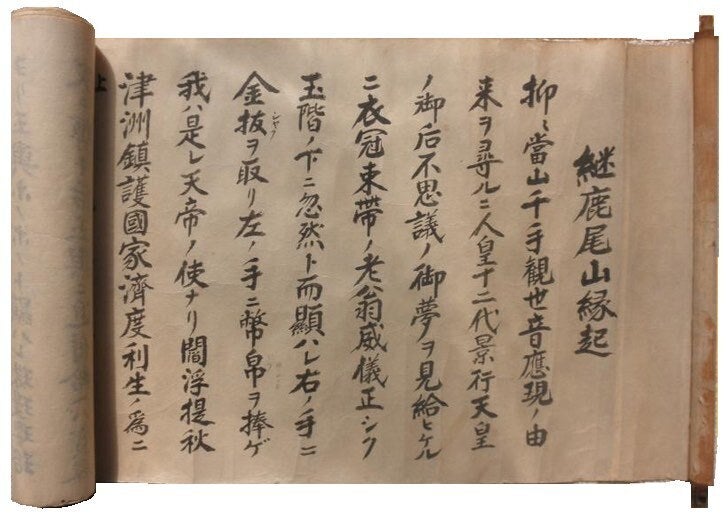 継鹿尾山縁起
抑〻當山千手観世音應現ノ由
来ヲ尋ルニ人皇十二代景行天皇
ノ御后不思議ノ御夢ヲ見給ヒケル
ニ衣冠束帯ノ老翁威儀正シク
玉階ノ下ニ忽然ト而顯ハレ右ノ手ニ
金抜ヲ取リ左ノ手ニ幣帛ヲ捧ゲ
我ハ是レ天帝ノ使ナリ閻浮提秋
津洲鎮護國家濟度利生ノ為ニ